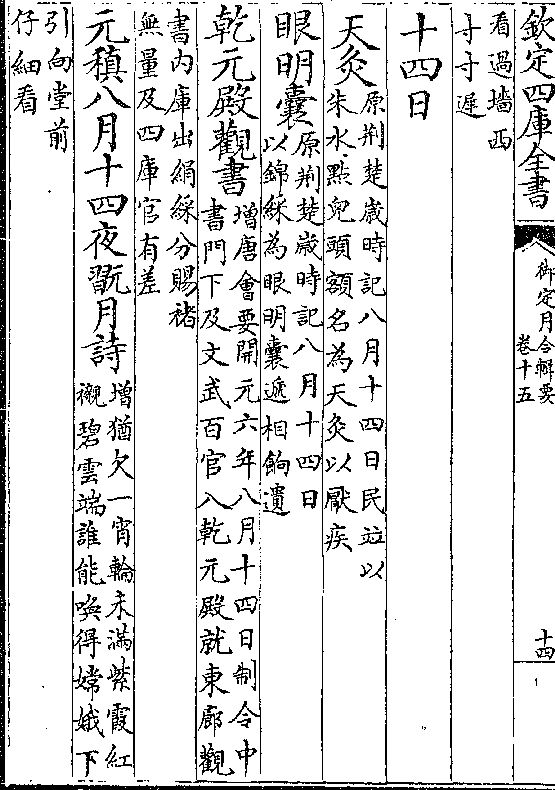 欽定四庫全書
御定月令輯要
卷十五
十四
看過墻西
寸寸遲
十四日
天灸
原荊楚歲時記八月十四日民竝以
朱水點兒頭額名為天灸以厭疾
眼明囊
原荊楚歲時記八月十四日
以錦綵為眼明囊遞相餉遺
乾元殿觀書
增唐會要開元六年八月十四日制令中
書門下及文武百官入乾元殿就東廊觀
書內庫出絹綵分賜褚
無量及四庫官有差
元稹八月十四夜翫月詩
增猶欠一宵輪未滿紫霞紅
襯碧雲端誰能喚得嫦娥下
引向堂前
仔細看